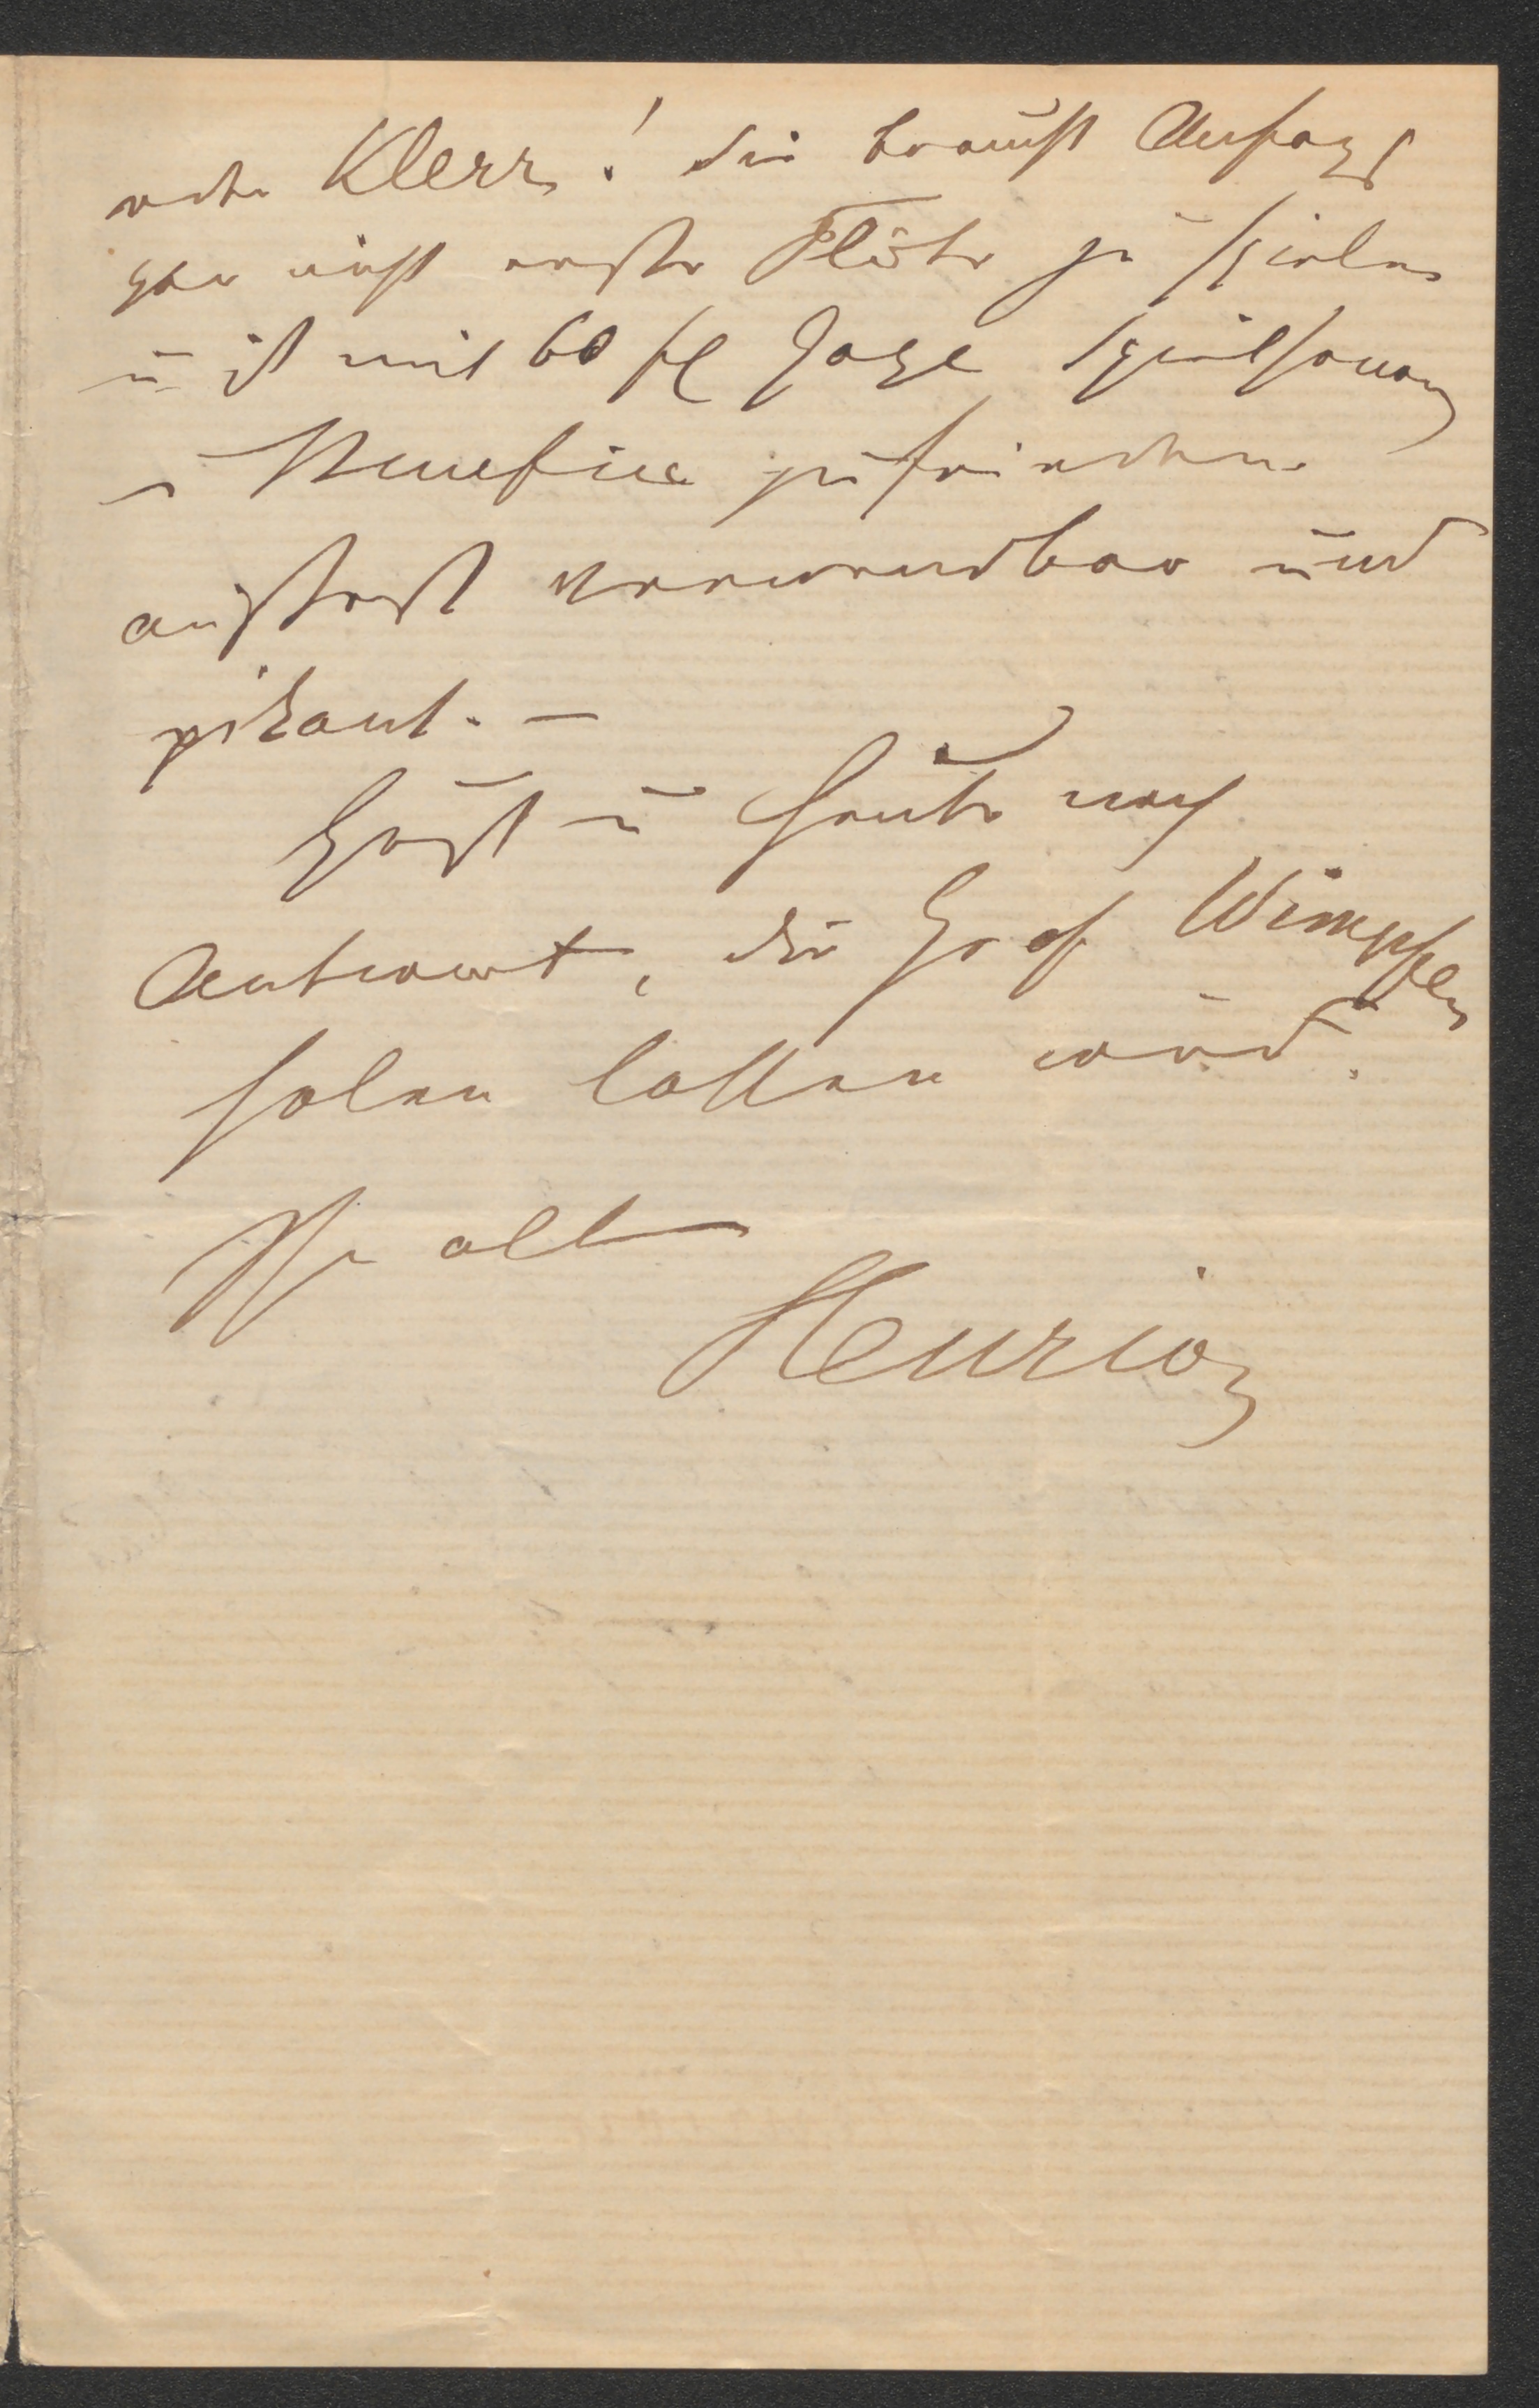 oder Klerr! die braucht Anfangs
gar nicht erste Flöte zu spielen
u ist mit 60 fl Gage Spielhonor
u Benefice zufrieden
äußerst verwendbar und
pikant. –
Gruß u heute noch
Antwort, die Graf Wimpffen
holen lassen wird.
Ihr alter
Henrion